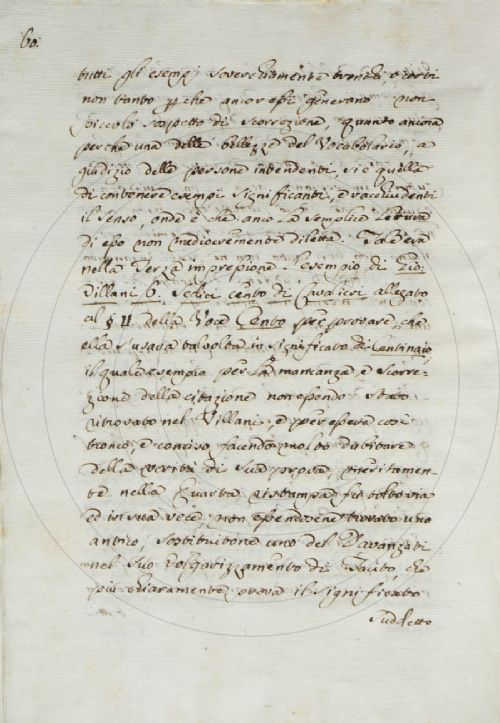 60.
tutti gli esempj soverchiamente tronchi, o corti
non tanto perche ancor essi generano non
piccolo sospetto di scorrezione, quanto ancora
perche una delle bellezze del Vocabolario, a
giudizio delle persone intendenti, si è quella
di contenere esempi significanti, e racchiudenti
il senso, onde è che anco la semplice lettura
di esso non mediocremente diletta. Tal'era
nella Terza impressione l'esempio di Gio:
Villani 6. Sedici cento di Cavalieri allegato
al § II della Voce Cento per provare, che
ella s'usava talvolta in significato di Centinaio,
il quale esempio per la mancanza e scorre-
zione della citazione non essendo stato
ritrovato nel Villani, e per essere così
tronco, e conciso facendo molto dubitare
della verità di sua prova, meritamen-
te nella Quarta ristampa fu tolto via
ed in sua vece, non essendosene trovato uno
antico, sostituitone uno del Davanzati
nel suo volgarizzamento di Tacito, che
più chiaramente prova il significato
suddetto